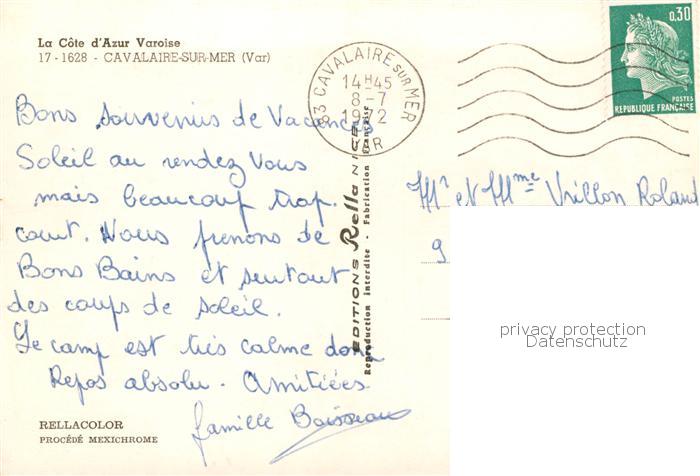 La Côte d'Azur Varoise
17-1628 - CAVALAIRE-SUR-MER (Var)
Bons souvenirs de Vacances
Soleil au rendez vous
mais beaucoup trop
court. Nous prenons de
Bons Bains et surtout
des coups de soleil.
Le camp est très calme donc
Repos absolu - Amitiées
famille Boisseau
RELLACOLOR
PROCÉDÉ MEXICHROME
EDITIONS Rella NICE
Reproduction interdite - Fabrication Française
83 CAVALAIRE SUR MER
14H45
8-7
1972
VAR
0,30
POSTES
REPUBLIQUE FRANÇAISE
Mr et Mme Vrillon Roland
9
privacy protection
Datenschutz